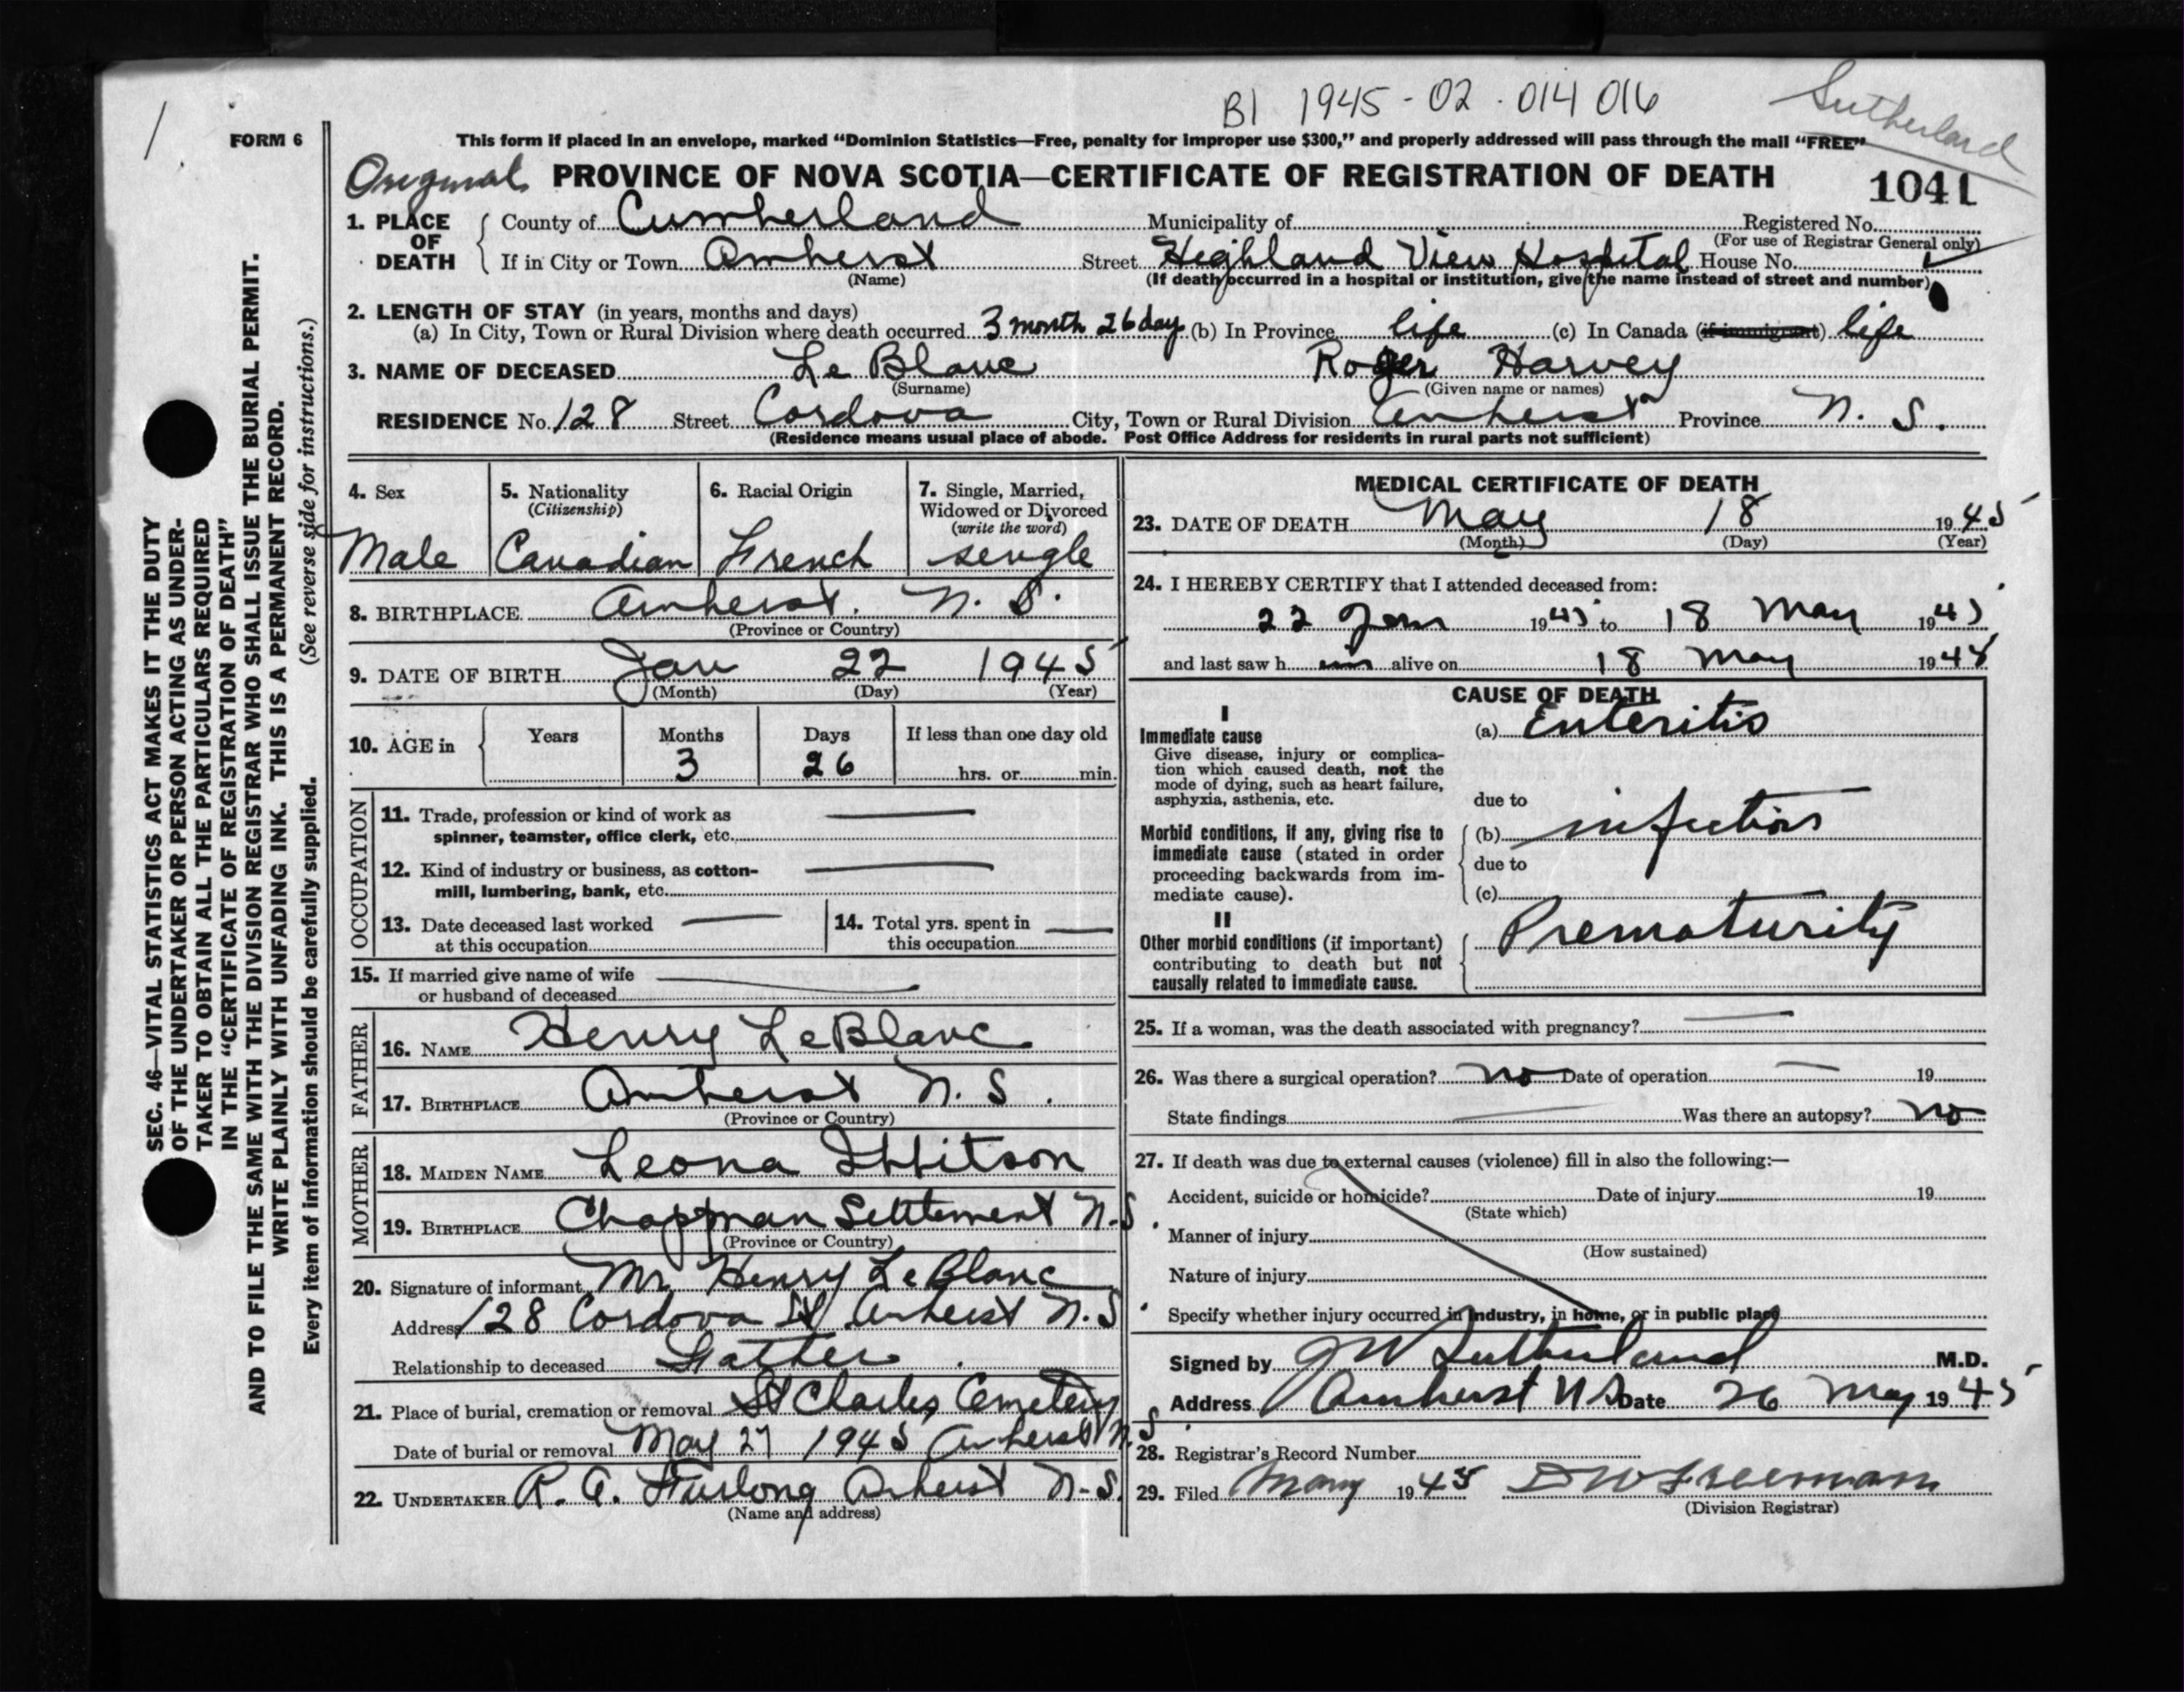 B1 1945-02-014016
Sutherland
FORM 6
This form if placed in an envelope, marked “Dominion Statistics—Free, penalty for improper use $300,” and properly addressed will pass through the mail “FREE”
Original PROVINCE OF NOVA SCOTIA—CERTIFICATE OF REGISTRATION OF DEATH 1041
1. PLACE OF DEATH
County of Cumberland Municipality of Registered No.
(For use of Registrar General only)
If in City or Town Amherst Street Highland View Hospital House No.
(Name) (If death occurred in a hospital or institution, give the name instead of street and number)
2. LENGTH OF STAY (in years, months and days)
(a) In City, Town or Rural Division where death occurred 3 month 26 day (b) In Province life (c) In Canada (if immigrant) life
3. NAME OF DECEASED Le Blanc Roger Harvey
(Surname) (Given name or names)
RESIDENCE No. 128 Street Cordova City, Town or Rural Division Amherst Province N. S.
(Residence means usual place of abode. Post Office Address for residents in rural parts not sufficient)
4. Sex 5. Nationality 6. Racial Origin 7. Single, Married,
(Citizenship) Widowed or Divorced
(write the word)
Male Canadian French single
8. BIRTHPLACE Amherst. N. S.
(Province or Country)
9. DATE OF BIRTH Jan 22 1945
(Month) (Day) (Year)
10. AGE in Years Months Days If less than one day old
3 26 hrs. or min.
OCCUPATION
11. Trade, profession or kind of work as
spinner, teamster, office clerk, etc.
12. Kind of industry or business, as cotton-
mill, lumbering, bank, etc.
13. Date deceased last worked 14. Total yrs. spent in
at this occupation this occupation
15. If married give name of wife
or husband of deceased
FATHER
16. NAME Henry LeBlanc
17. BIRTHPLACE Amherst N. S.
(Province or Country)
MOTHER
18. MAIDEN NAME Leona Ibbitson
19. BIRTHPLACE Chapman Settlement N.S.
(Province or Country)
20. Signature of informant Mr. Henry LeBlanc
Address 128 Cordova St Amherst N.S.
Relationship to deceased Father
21. Place of burial, cremation or removal St Charles Cemetery
Date of burial or removal May 27 1945 Amherst N.S.
22. UNDERTAKER R. A. Furlong Amherst N.S.
(Name and address)
MEDICAL CERTIFICATE OF DEATH
23. DATE OF DEATH May 18 1945
(Month) (Day) (Year)
24. I HEREBY CERTIFY that I attended deceased from:
22 Jan 1945 to 18 May 1945
and last saw him alive on 18 May 1945
CAUSE OF DEATH
I
Immediate cause (a) Enteritis
Give disease, injury or complica-
tion which caused death, not the
mode of dying, such as heart failure,
asphyxia, asthenia, etc.
due to
Morbid conditions, if any, giving rise to (b) infectious
immediate cause (stated in order due to
proceeding backwards from im-
mediate cause). (c)
II
Other morbid conditions (if important) Prematurity
contributing to death but not
causally related to immediate cause.
25. If a woman, was the death associated with pregnancy?
26. Was there a surgical operation? no Date of operation 19
State findings Was there an autopsy? no
27. If death was due to external causes (violence) fill in also the following:—
Accident, suicide or homicide? Date of injury 19
(State which)
Manner of injury
(How sustained)
Nature of injury
Specify whether injury occurred in industry, in home, or in public place
Signed by J W Sutherland M.D.
Address Amherst NS Date 26 May 1945
28. Registrar's Record Number
29. Filed May 1945 D W Freeman
(Division Registrar)
SEC. 46—VITAL STATISTICS ACT MAKES IT THE DUTY
OF THE UNDERTAKER OR PERSON ACTING AS UNDER-
TAKER TO OBTAIN ALL THE PARTICULARS REQUIRED
IN THE “CERTIFICATE OF REGISTRATION OF DEATH”
AND TO FILE THE SAME WITH THE DIVISION REGISTRAR WHO SHALL ISSUE THE BURIAL PERMIT.
WRITE PLAINLY WITH UNFADING INK. THIS IS A PERMANENT RECORD.
Every item of information should be carefully supplied. (See reverse side for instructions.)